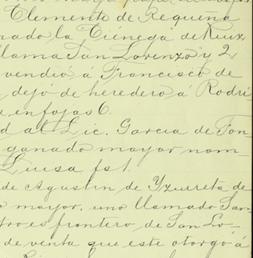 Clemente de Requena
nado la Cienega de Ruiz
llama San Lorenzo y 2
vendio á Francisco de
dejó de heredero á Rodri
en fojas 6
d al Lic. Garcia de Fon
ganado mayor nom
Luisa fs 1.
de Agustin de Yzurreta de
o mayor, uno llamado San
tro es frontero de San Lo-
de venta que este otorgó á